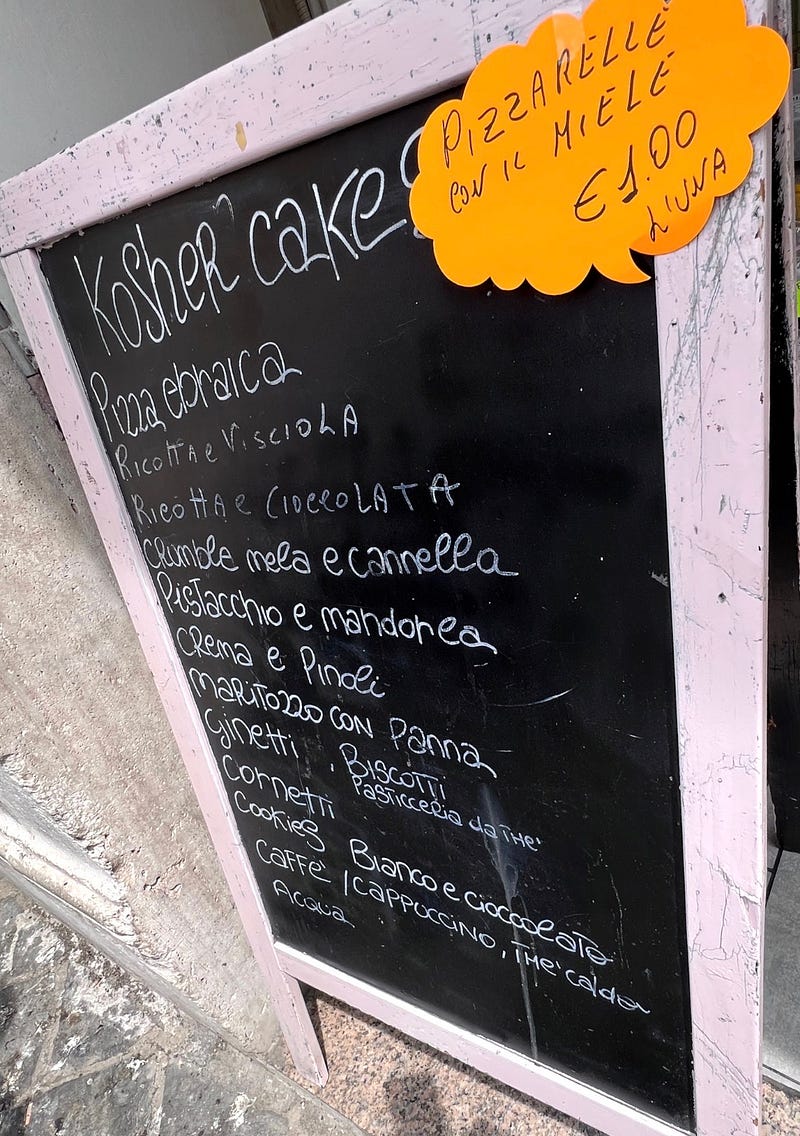 PIZZARELLE
CON IL MIELE
€1.00
L'UNA
Kosher cakes
Pizza ebraica
Ricotta e Visciola
Ricotta e Cioccolata
Crumble mela e cannella
Pistacchio e mandorla
Crema e Pinoli
Maritozzo con panna
Ginetti , Biscotti
Cornetti Pasticceria da The'
Cookies Bianco e cioccolato
Caffe' / cappuccino, The caldo
Acqua